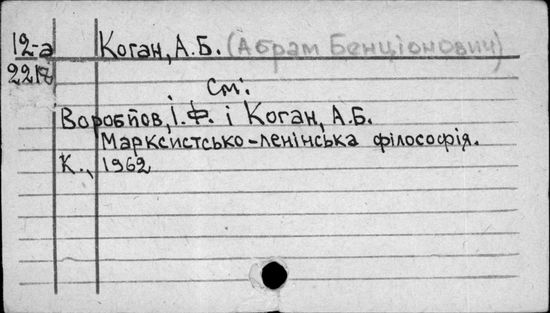 12-а Коган, А.Б. (Абрам Бенціонович)
2218
См:
Воробйов, І.Ф. і Коган, А.Б.
Марксистсько-ленінська філософія.
К., 1962